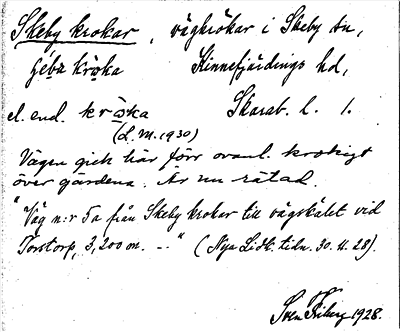 Skeby krokar, vägkrökar i Skeby sn,
Kinnefjärdings hd,
el. end. Skarab. l. 1.
(L.M. 1930)
Vägen gick här förr ovanl. krokigt
över gärdena. Är nu rätad.
"Väg n:r 5a från Skeby krokar till vägskälet vid
Torstorp, 3,200 m. -.." (Nya Lidk. tidn. 30.11.28).
1928.